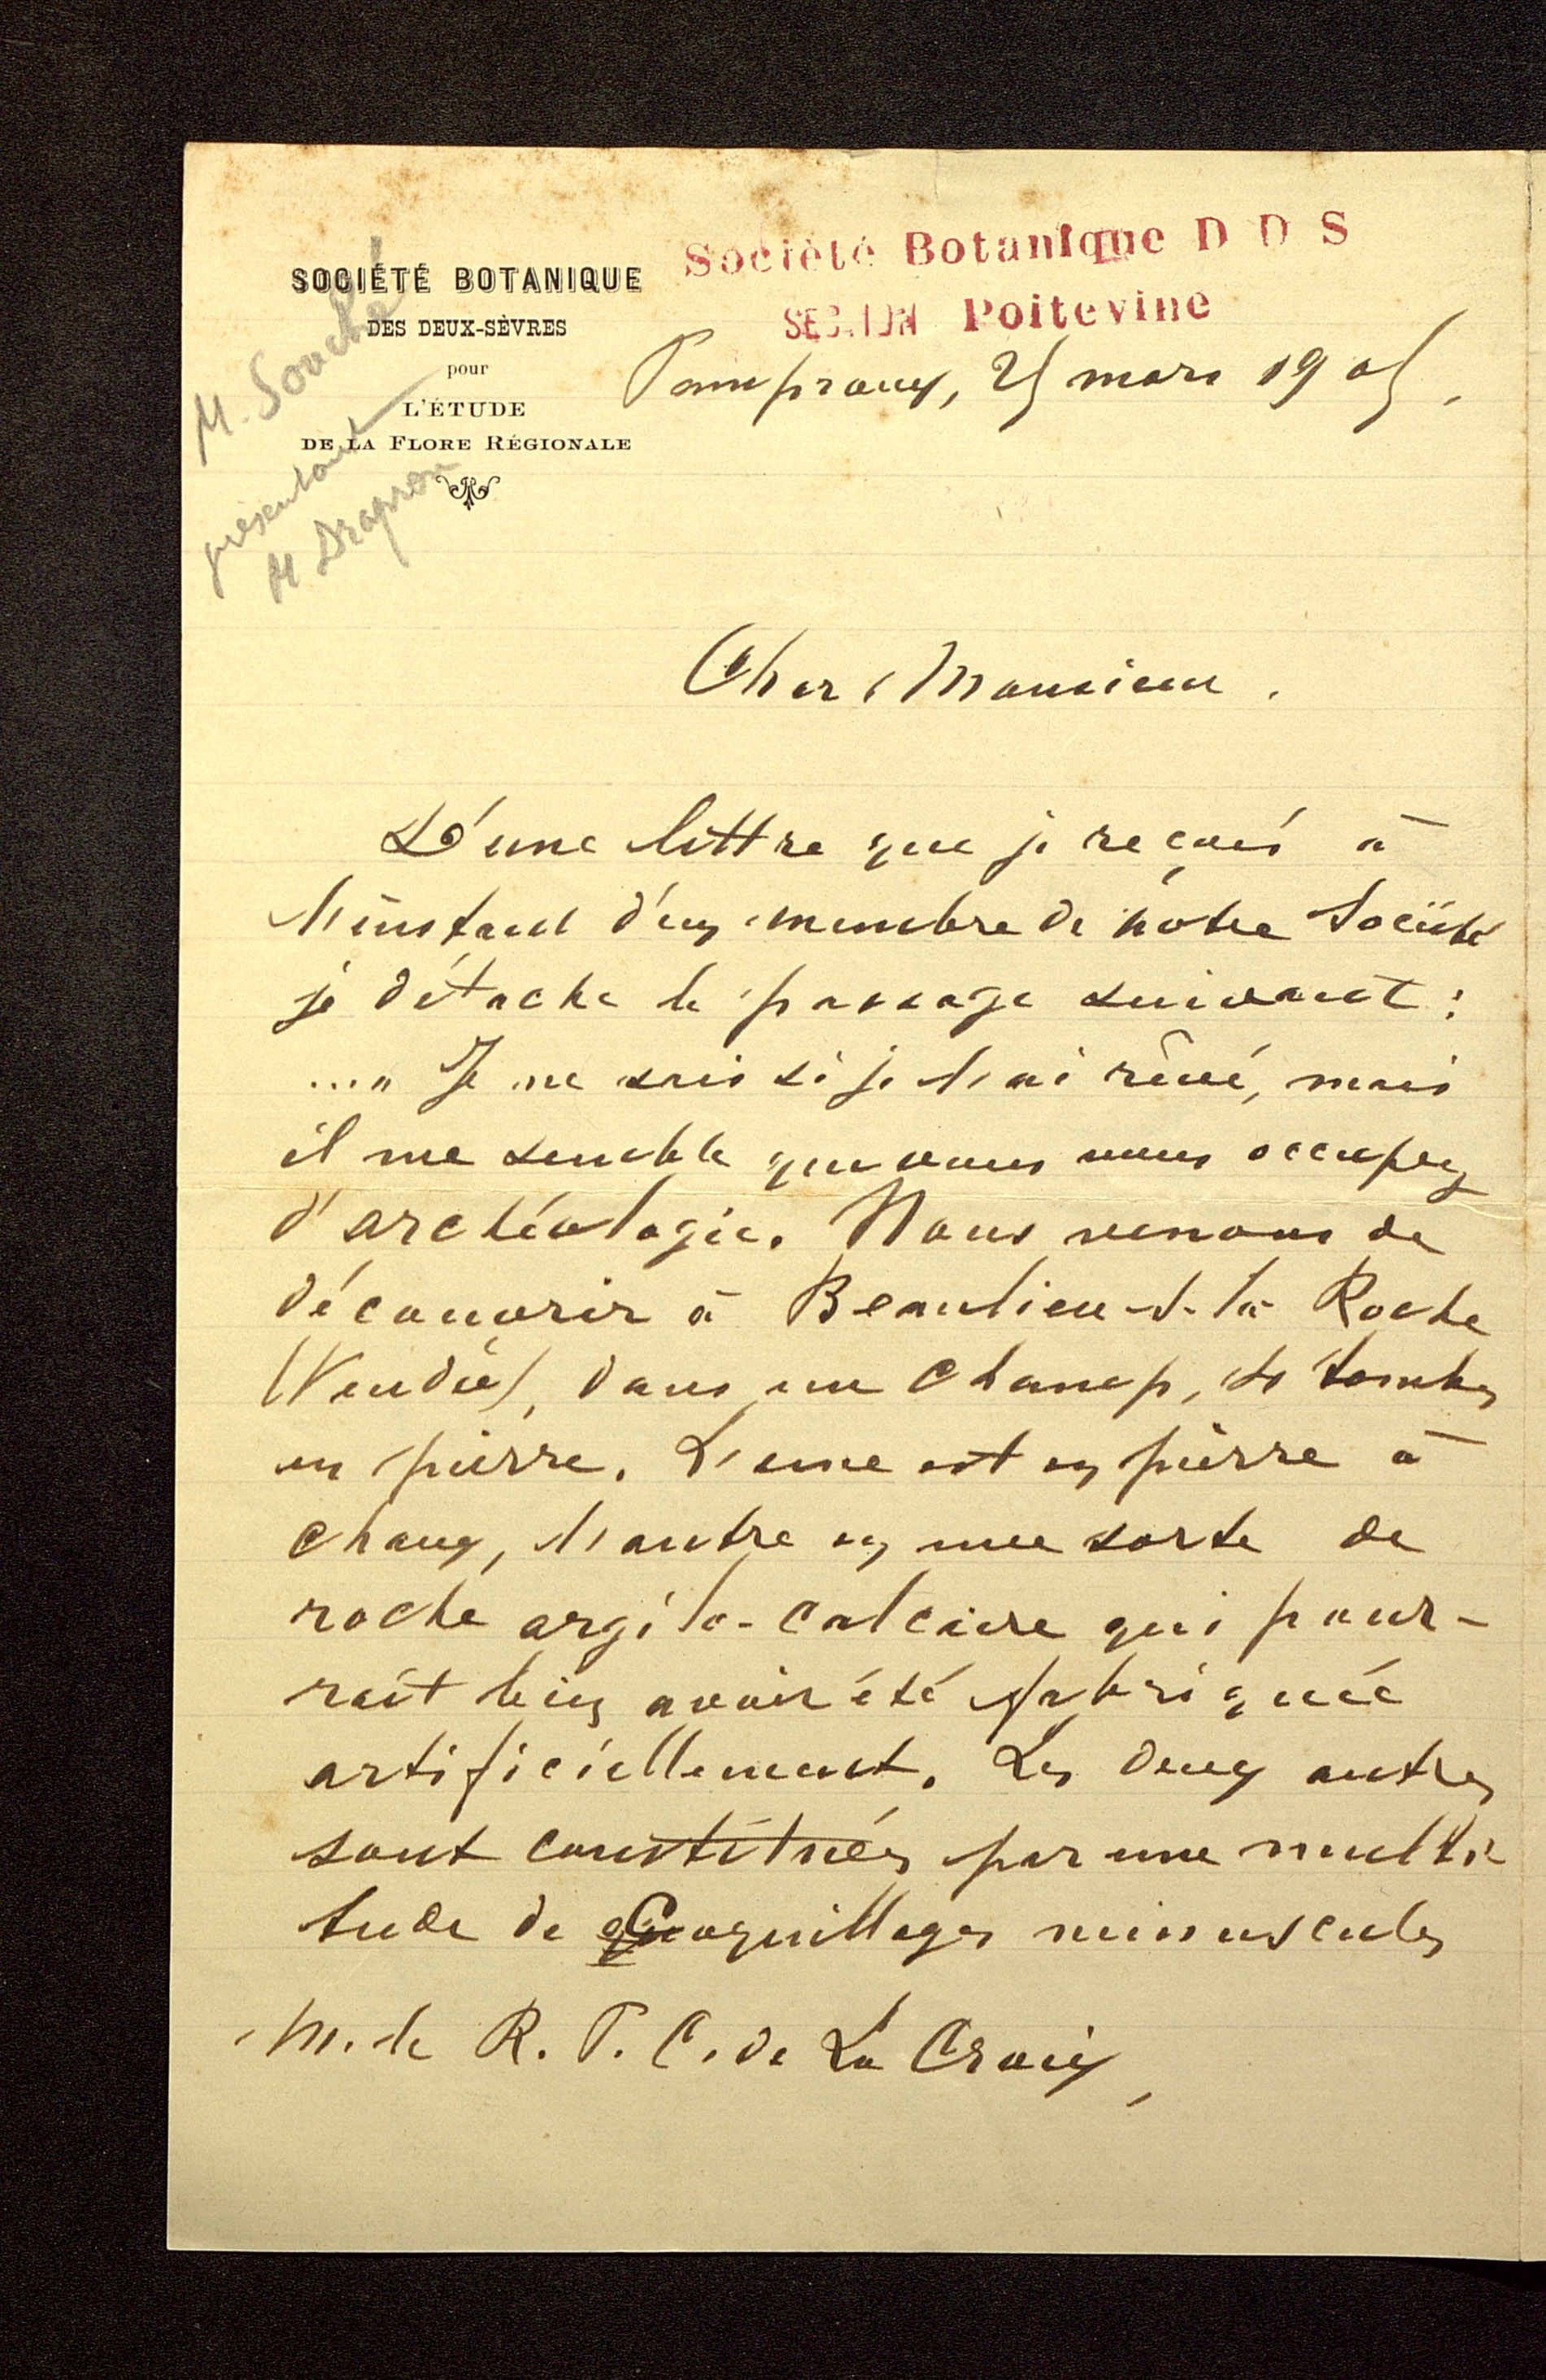 SOCIÉTÉ BOTANIQUE
DES DEUX-SÈVRES
pour
L'ÉTUDE
DE LA FLORE RÉGIONALE
M. Souché
présentant
M Drapron
Société Botanique D D S
SECTION Poitevine
Pamproux, 25 mars 1905.
Cher Monsieur.
D'une lettre que je reçois à
l'instant d'un membre de notre Société
je détache le passage suivant :
..." Je ne sais si je l'ai rêvé, mais
il me semble que vous vous occupez
d'archéologie. Nous venons de
découvrir à Beaulieu-s-la Roche
(Vendée), dans un champ, tombes
en pierre. L'une est en pierre à
chaux, l'autre en une sorte de
roche argilo-calcaire qui pour-
rait bien avoir été fabriquée
artificiellement. Les deux autres
sont constituées par une multi
tude de Coquillages minuscules
M. le R. P. C. de La Croix,